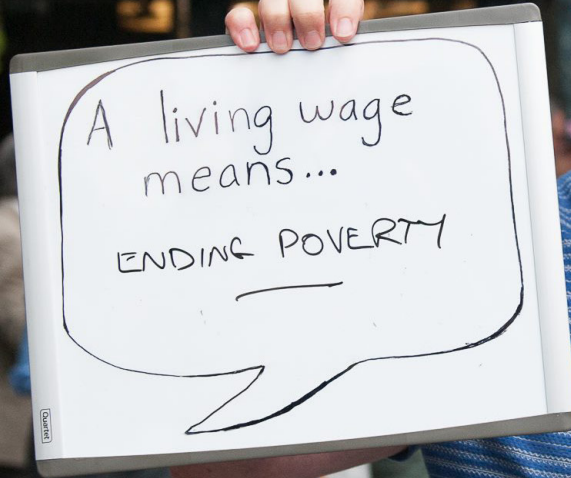 A living wage
means...
ENDING POVERTY
Quartet